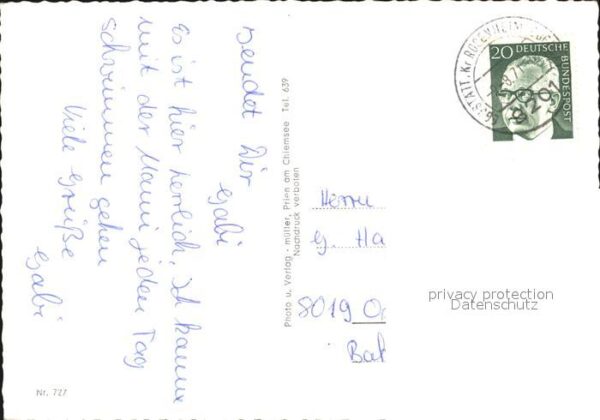 sendet Dir
Gabi
Es ist hier herrlich, ich kann
mit der Mami jeden Tag
schwimmen gehen
Viele Grüße
Gabi
Nr. 727
Photo u. Verlag - müller, Prien am Chiemsee Tel. 639
Nachdruck verboten
20 DEUTSCHE
BUNDESPOST
STATT, Kr ROSENHEIM
8201
Herrn
G. Ha
8019
privacy protection
Datenschutz